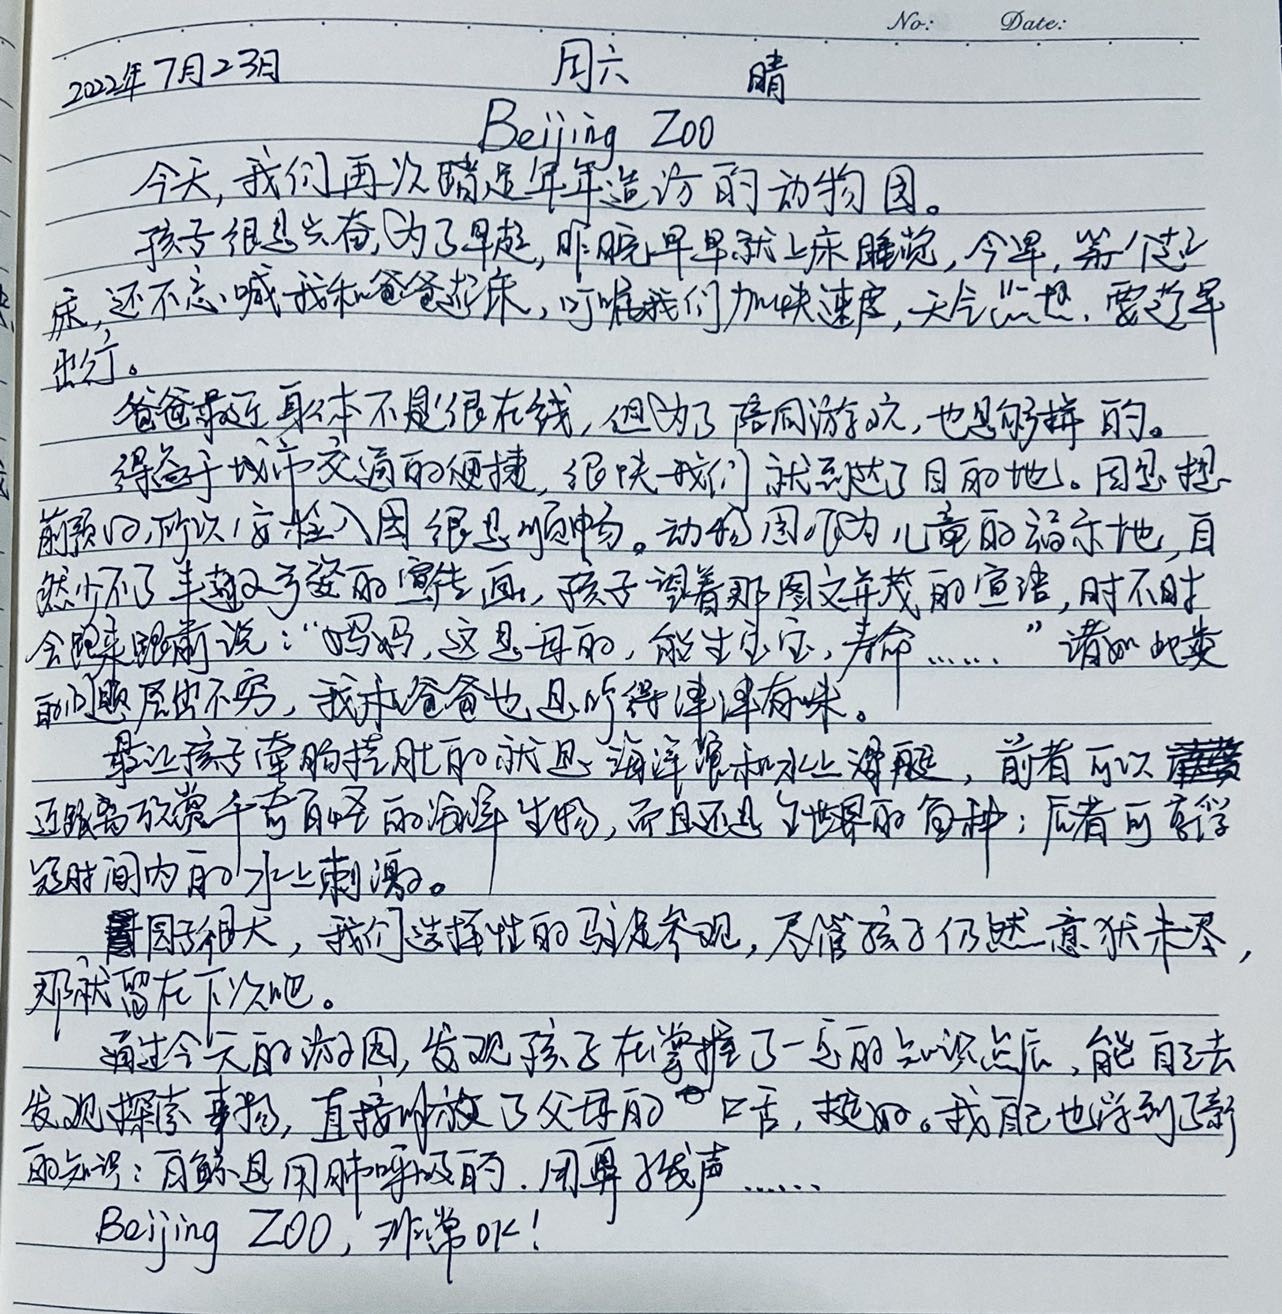 No: Date:
2022年7月23日 周六 晴
Beijing Zoo
今天，我们再次踏足年年造访的动物园。
孩子很是兴奋，为了早起，昨晚早早就上床睡觉，今早，第一个起
床，还不忘喊我和爸爸起床，叮嘱我们加快速度，天气炎热，要趁早
出行。
爸爸最近身体不是很在线，但为了陪同游玩，也是够拼的。
得益于城市交通的便捷，很快我们就到达了目的地。因是提
前预约，所以安检入园很是顺畅。动物园作为儿童的福乐地，自
然少不了丰富多姿的宣传画，孩子望着那图文并茂的宣语，时不时
会跑来跟前说：“妈妈，这是母的，能生宝宝，寿命……”诸如此类
的问题层出不穷，我和爸爸也是听得津津有味。
最让孩子牵肠挂肚的就是海洋馆和水上滑艇，前者可以
近距离欣赏千奇百怪的海洋生物，而且还是全世界的鱼种；后者可享得
短时间内的水上刺激。
园子很大，我们选择性的驻足参观，尽管孩子仍然意犹未尽，
那就留在下次吧。
通过今天的游园，发现孩子在掌握了一定的知识点后，能自己去
发现探索事物，直接解放了父母的口舌，挺好。我自己也学到了新
的知识：白鲸是用肺呼吸的，用鼻子发声……
Beijing ZOO，非常OK！